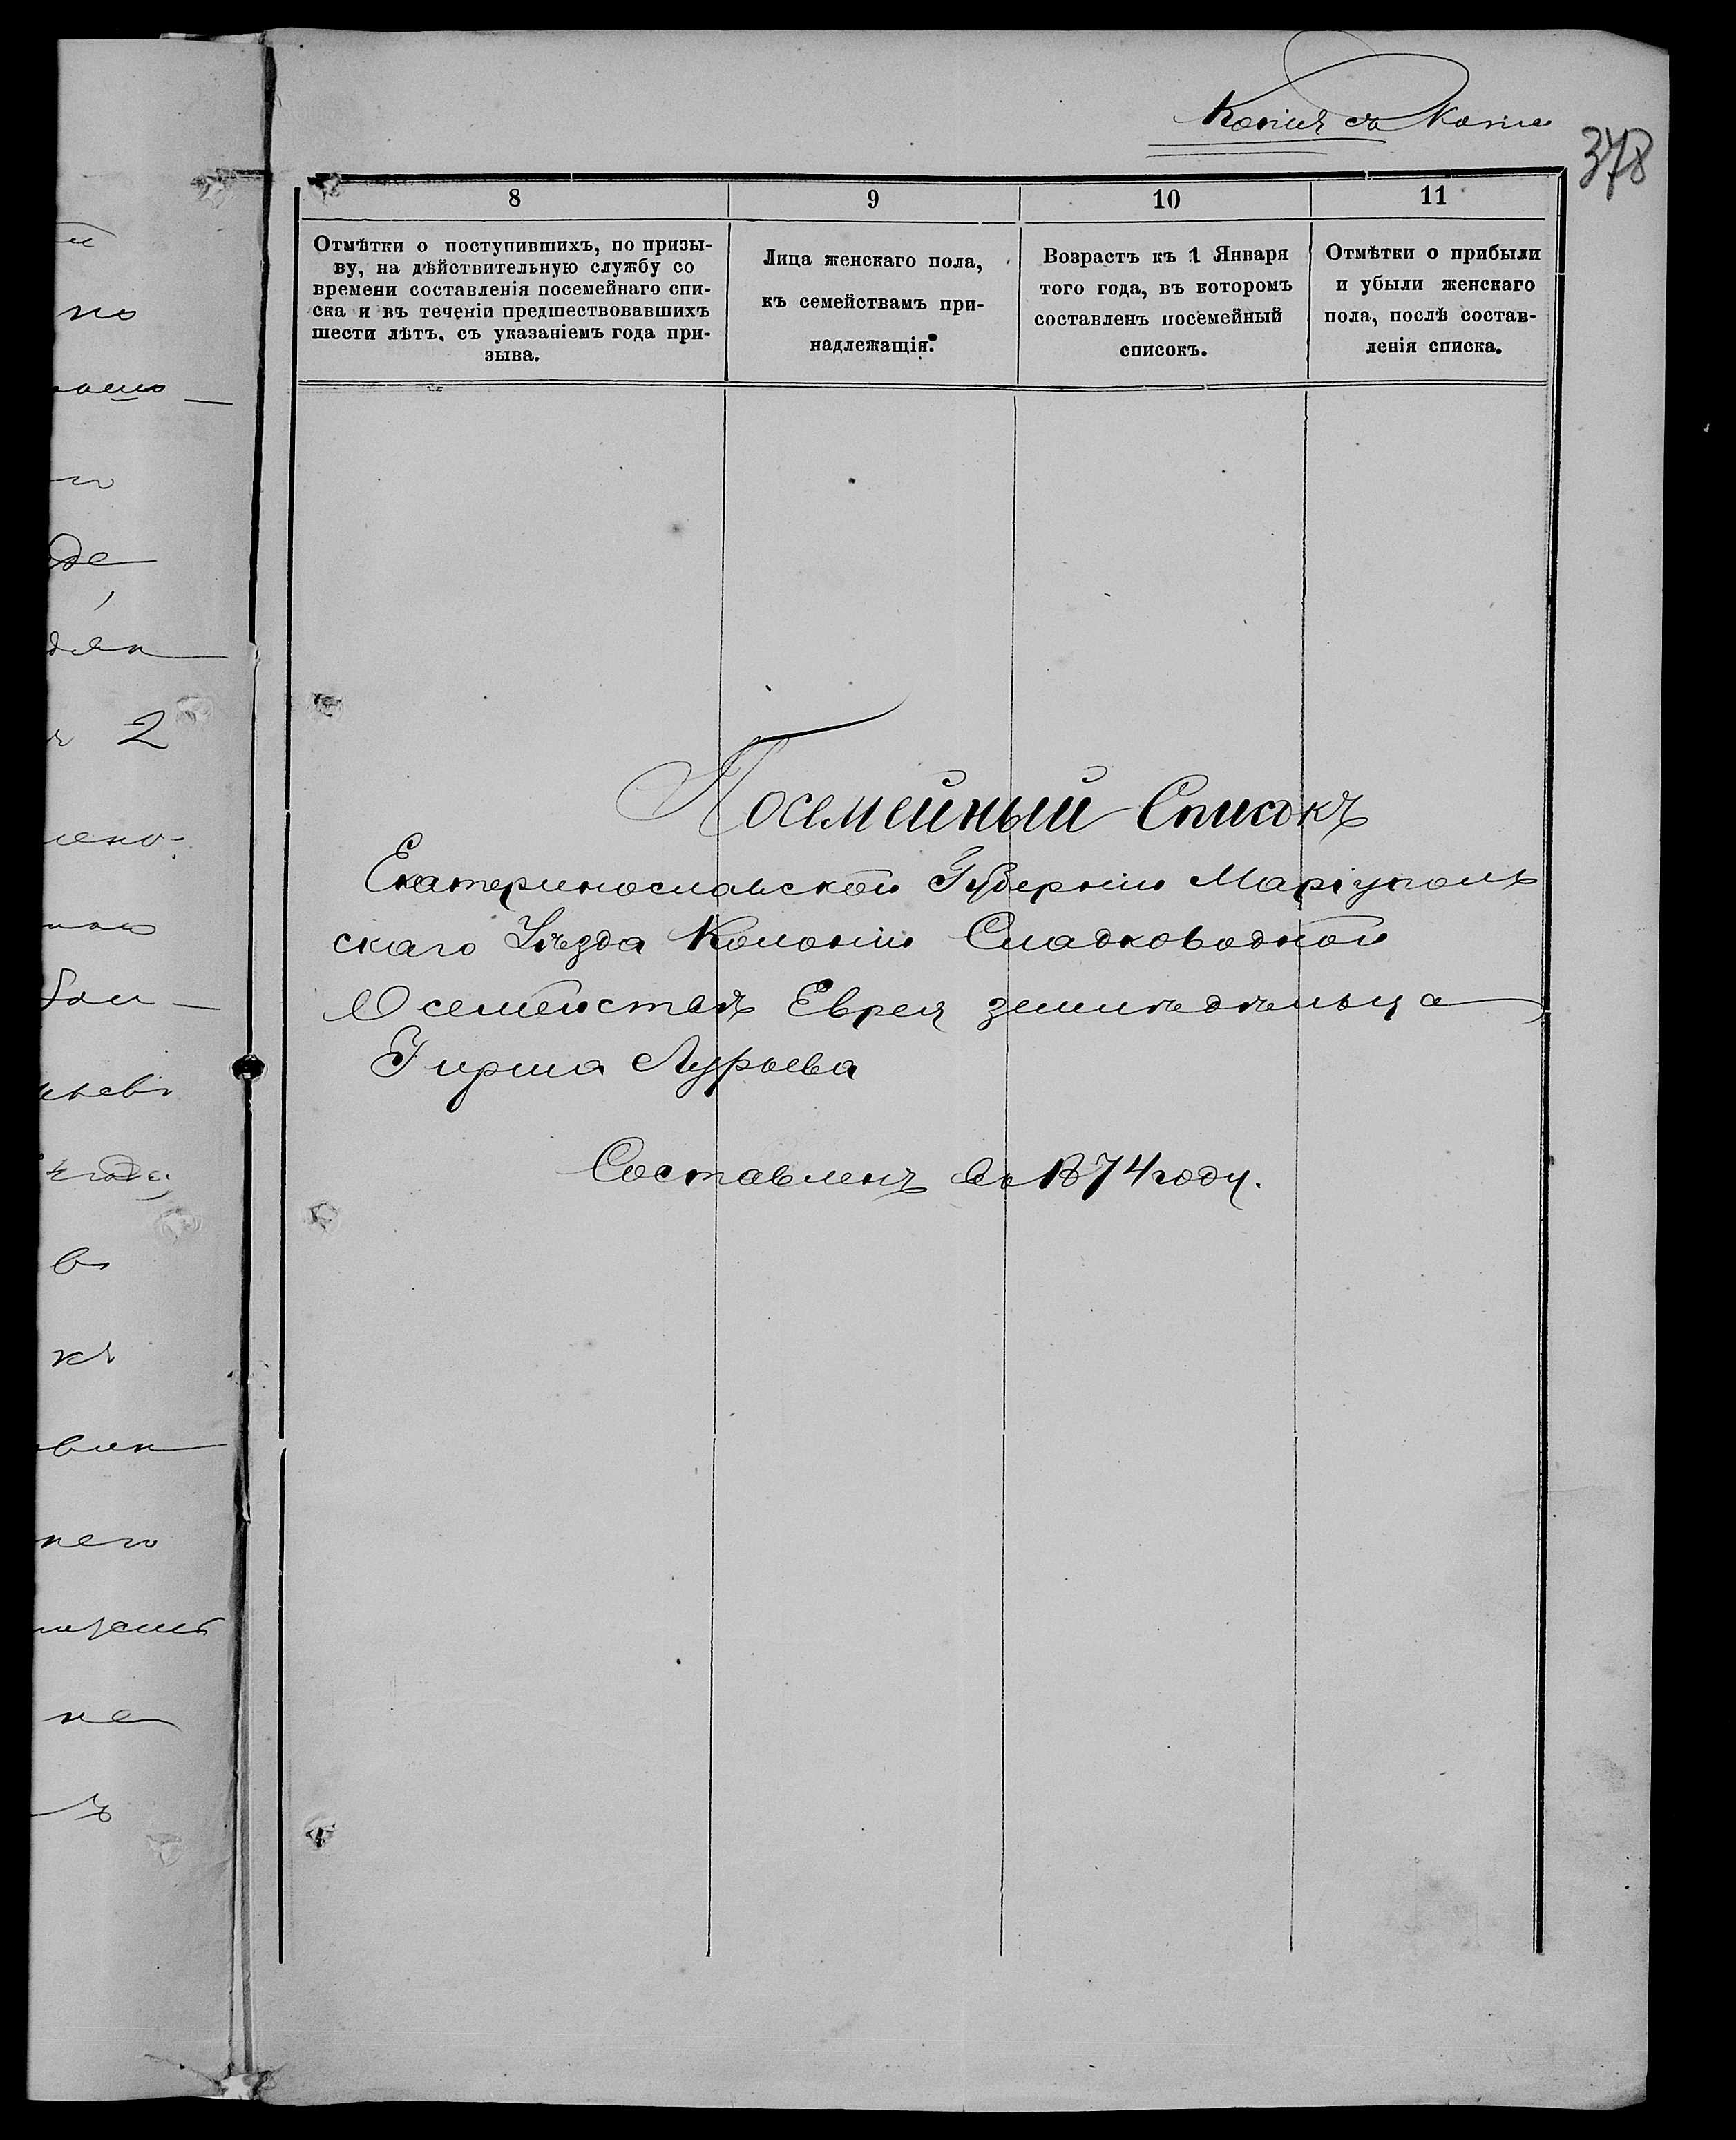 Копія съ Копіи
378
8
9
10
11
Отмѣтки о поступившихъ, по призы-
ву, на дѣйствительную службу со
времени составленія посемейнаго спи-
ска и въ теченіи предшествовавшихъ
шести лѣтъ, съ указаніемъ года при-
зыва.
Лица женскаго пола,
къ семействамъ при-
надлежащія.
Возрастъ къ 1 Января
того года, въ которомъ
составленъ посемейный
списокъ.
Отмѣтки о прибыли
и убыли женскаго
пола, послѣ состав-
ленія списка.
Посемейный Списокъ
Екатеринославской Губерніи Маріуполь
скаго Уѣзда Колоніи Сладководной
О семействѣ Еврея земледѣльца
Гирша Лурьева
Составленъ въ 1874 году.